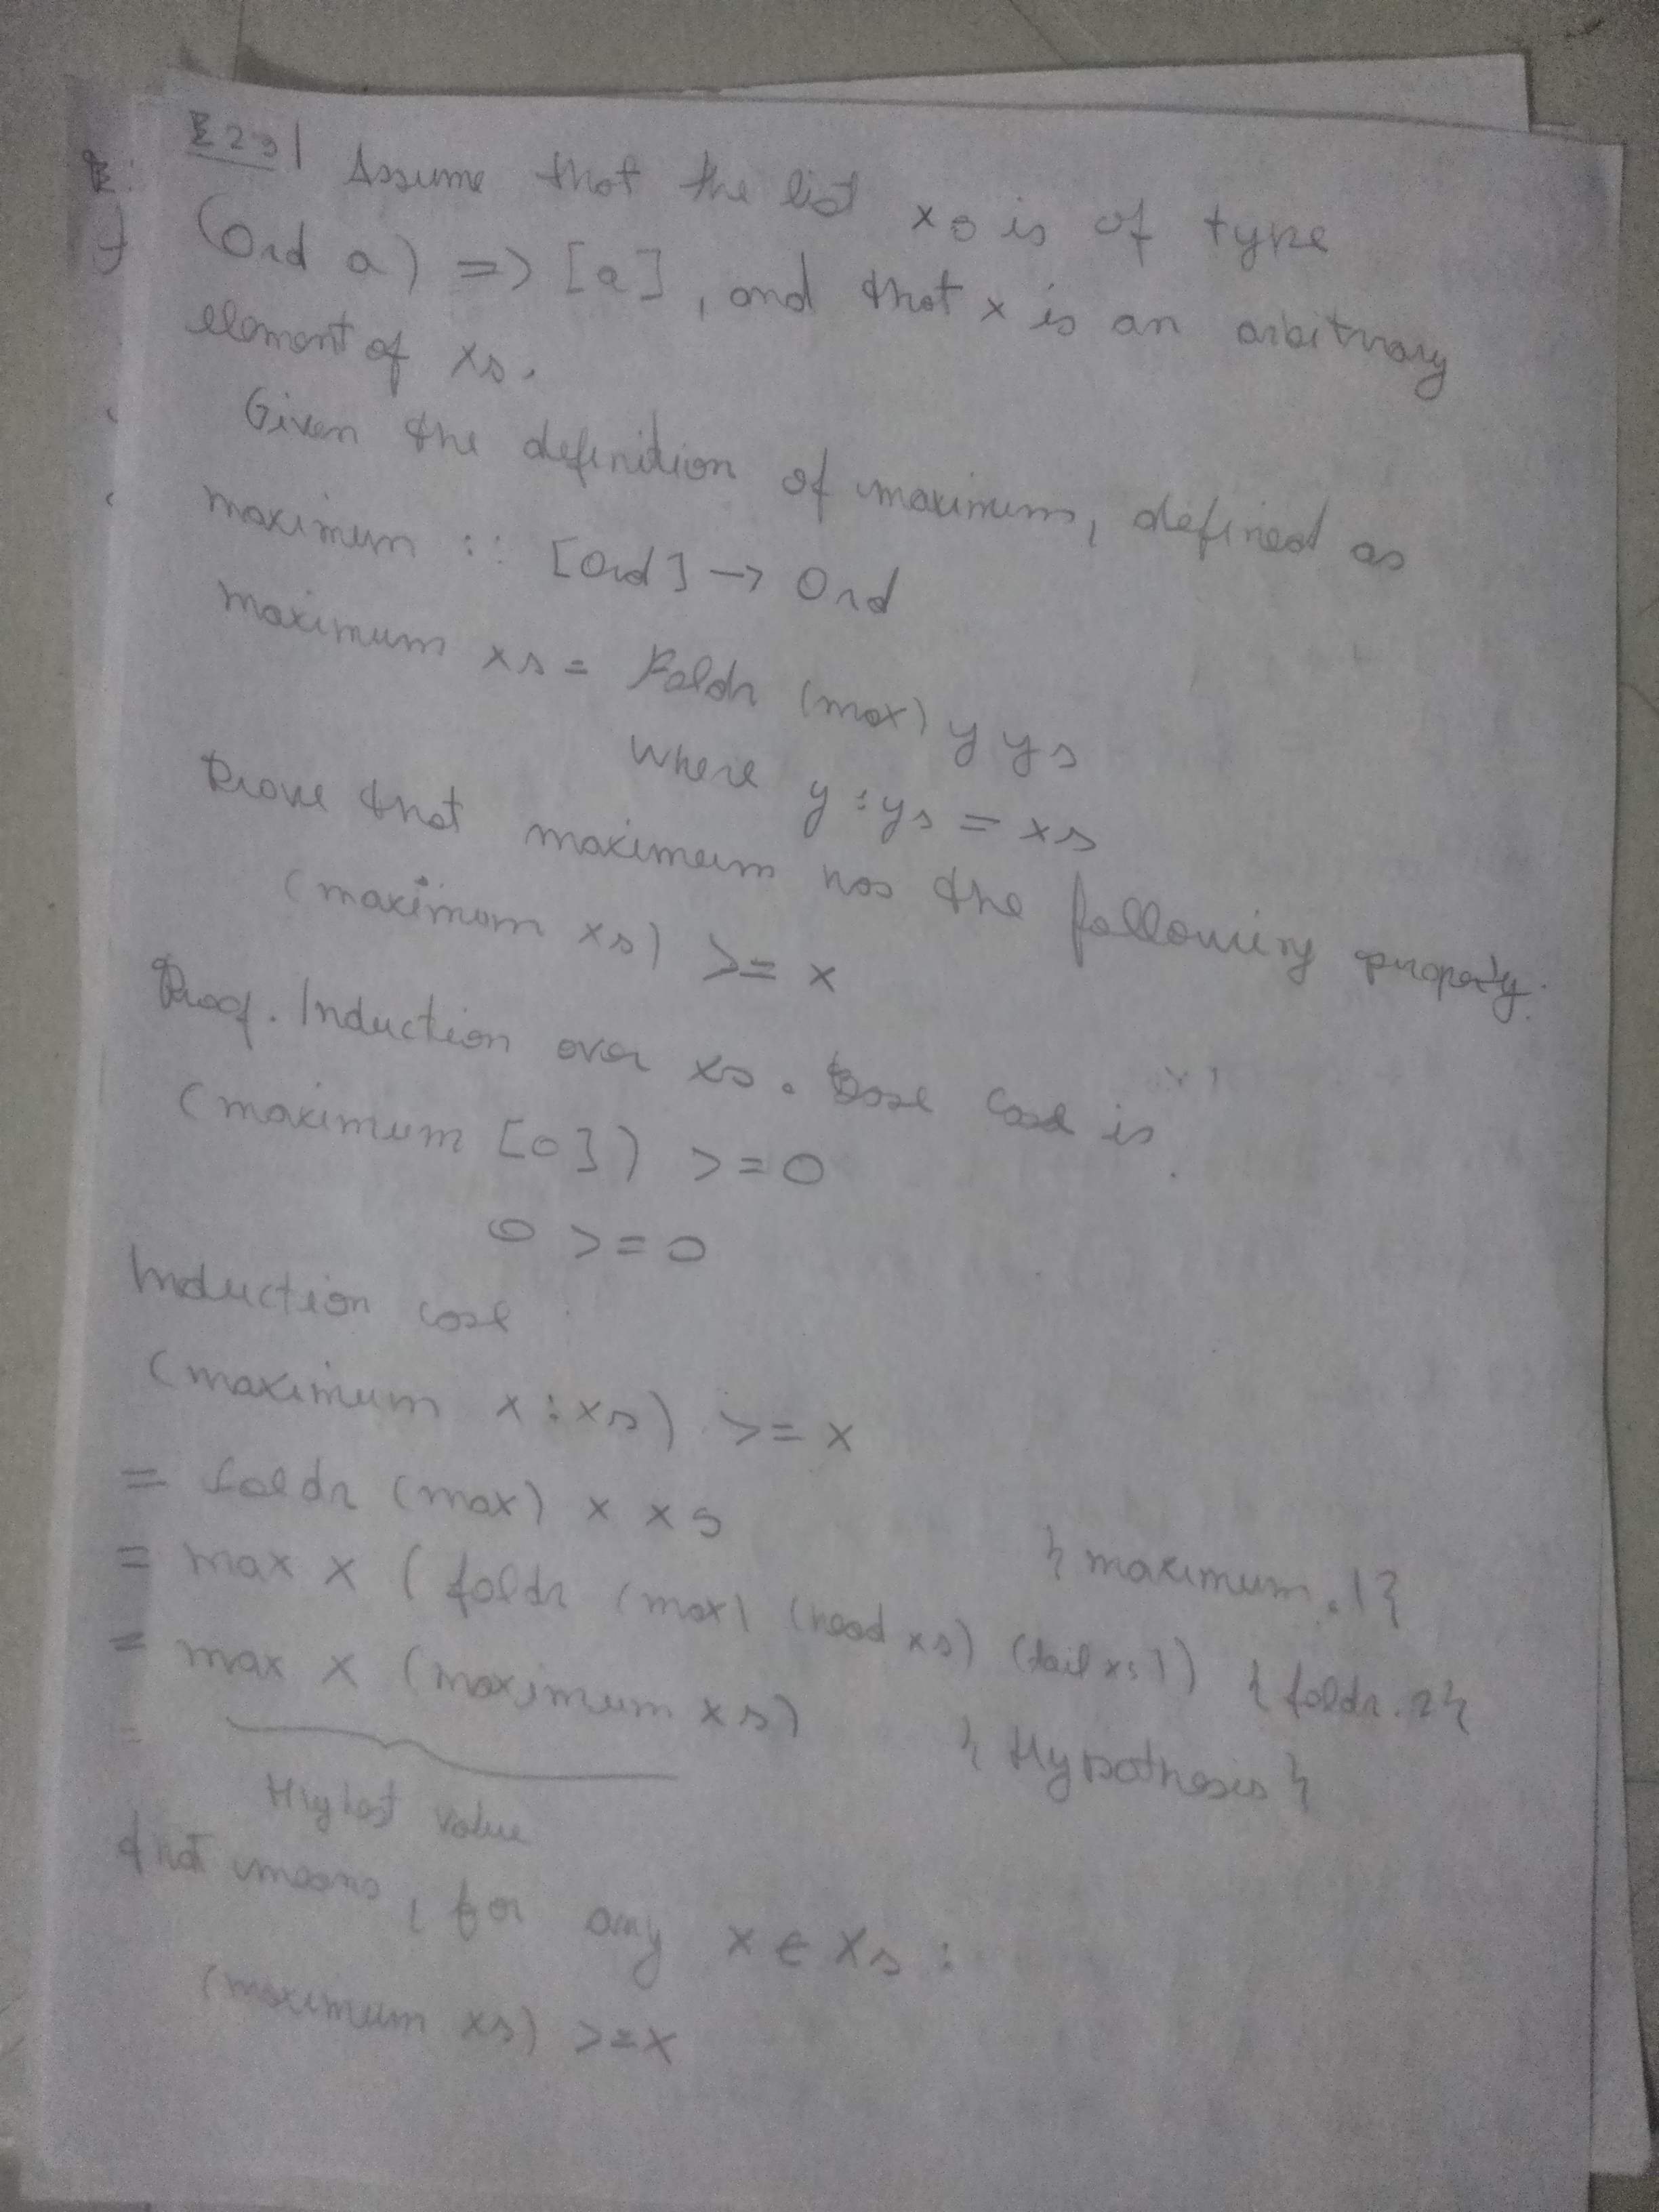 E23| Assume that the list xs is of type
(Ord a) => [a], and that x is an arbitrary
element of xs.
Given the definition of maximum, defined as
maximum :: [Ord] -> Ord
maximum xs = Foldr (max) y ys
where y:ys = xs
Prove that maximum has the following property.
(maximum xs) >= x
Proof. Induction over xs. Base case is
(maximum [0]) >= 0
0 >= 0
Induction case
(maximum x:xs) >= x
= foldr (max) x xs {maximum.1}
= max x (foldr (max) (head xs) (tail xs)) {foldr.2}
= max x (maximum xs) {Hypothesis}
Highest value
that means, for any x ∈ xs:
(maximum xs) >= x